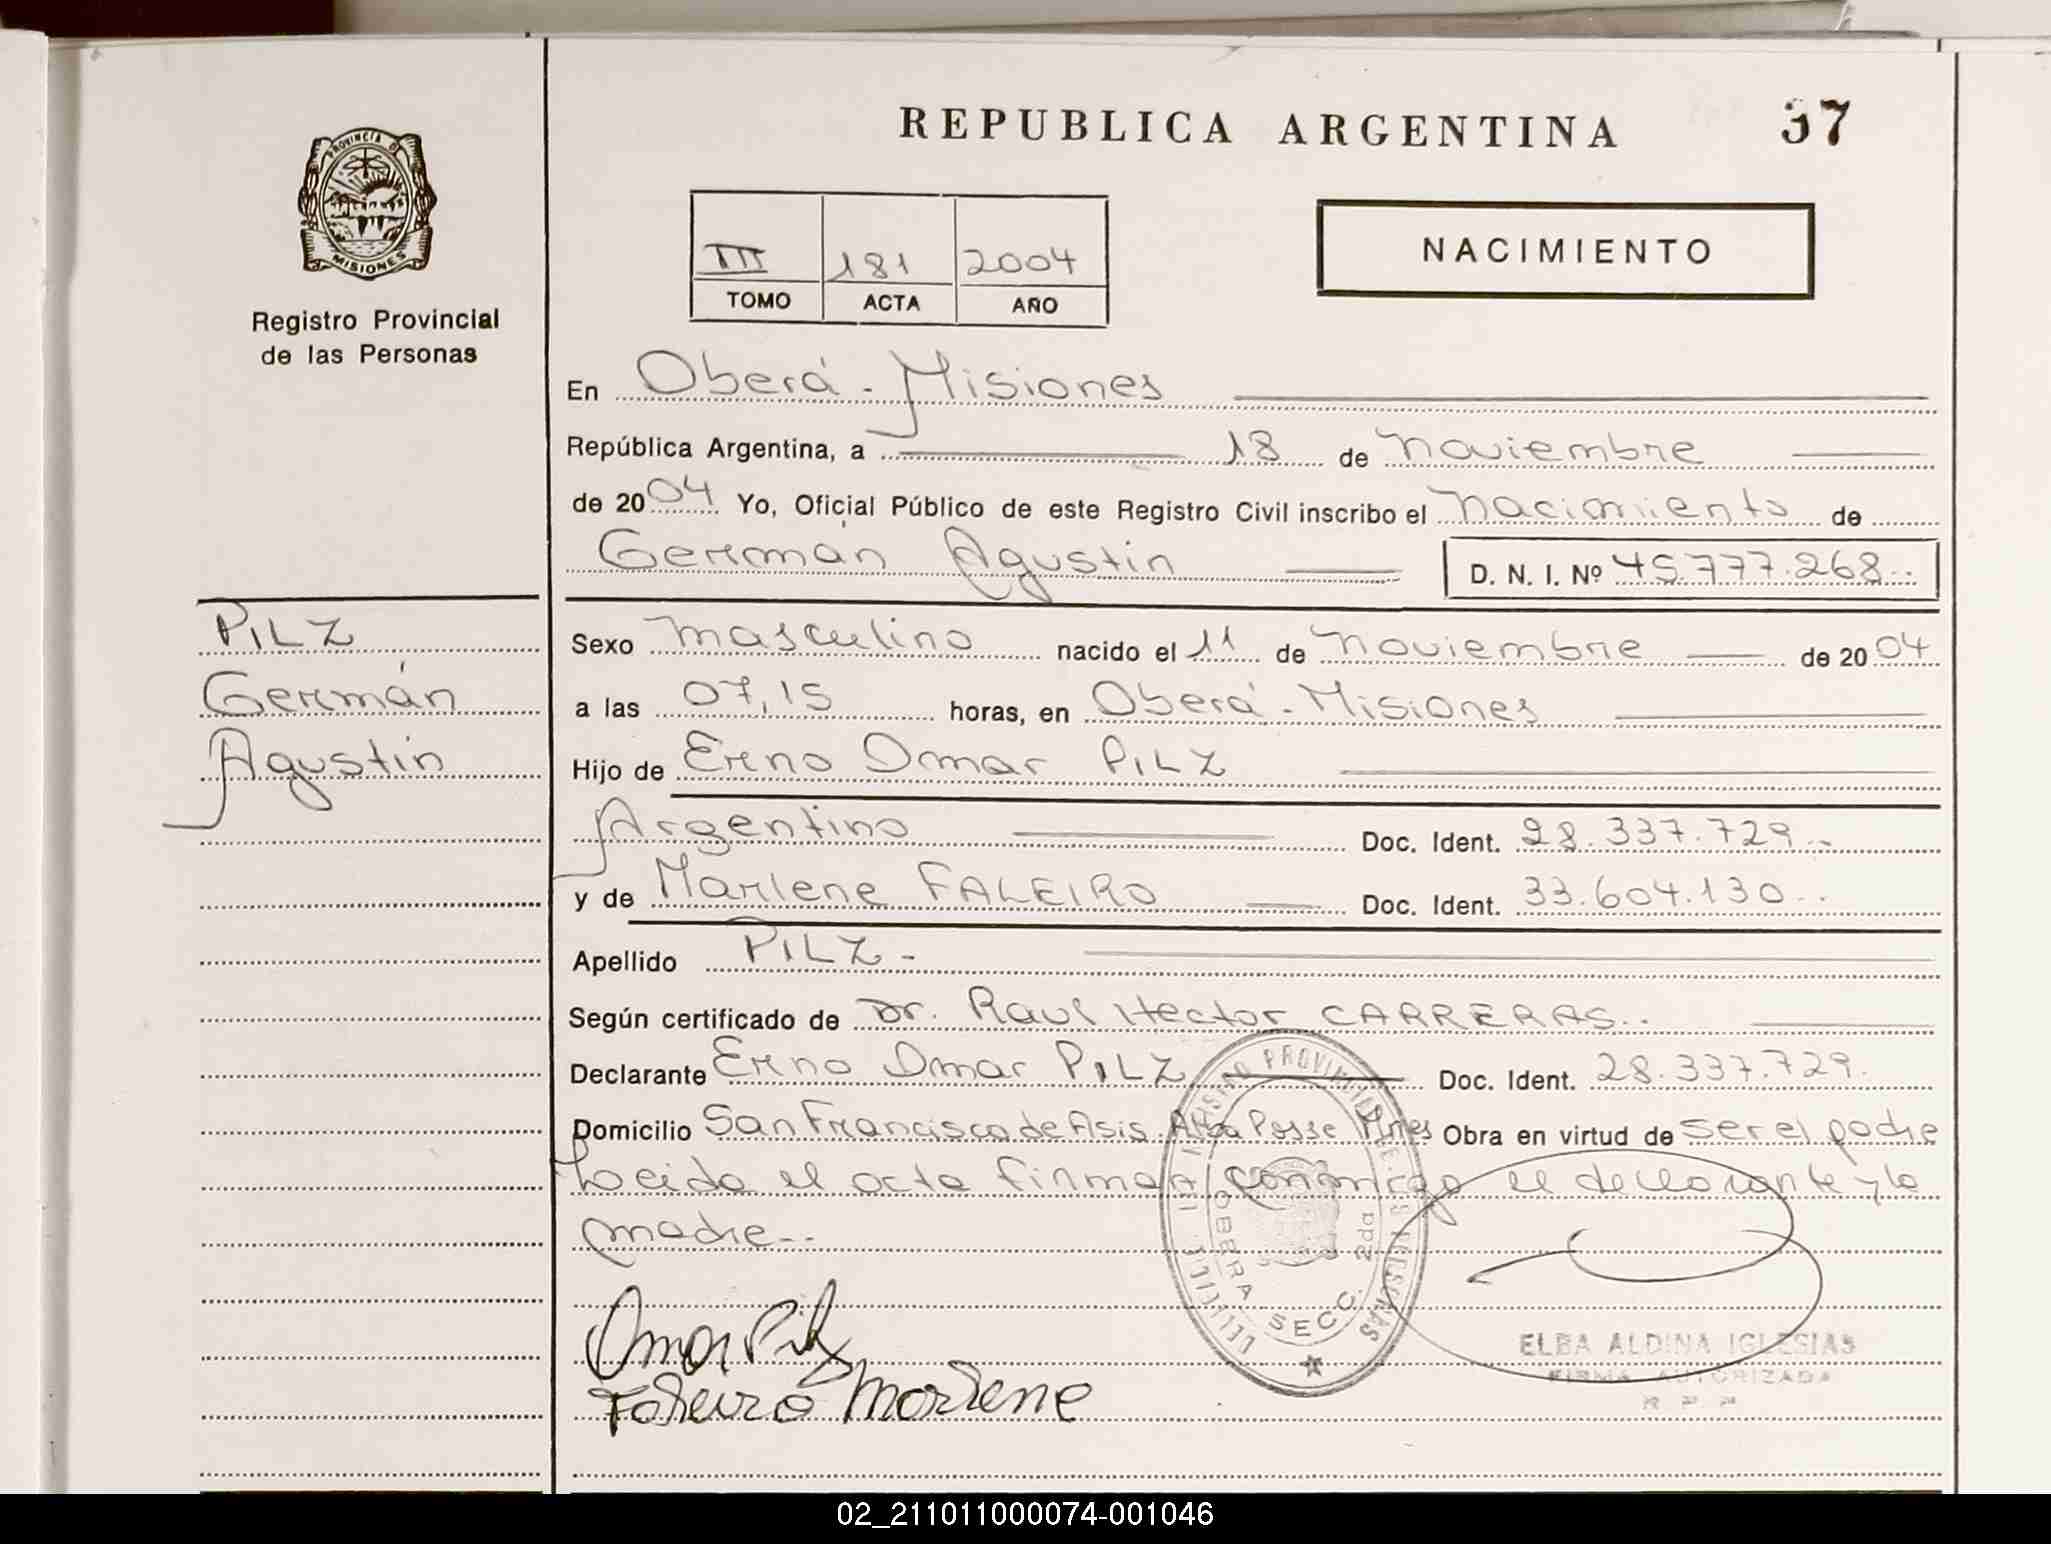 REPUBLICA ARGENTINA
37
PROVINCIA DE
MISIONES
Registro Provincial
de las Personas
III 181 2004
TOMO ACTA AÑO
NACIMIENTO
En Oberá - Misiones
República Argentina, a 18 de Noviembre
de 2004 Yo, Oficial Público de este Registro Civil inscribo el Nacimiento de
Germán Agustin
D. N. I. Nº 45.777.268..
PILZ
Germán
Agustin
Sexo Masculino nacido el 11 de Noviembre de 2004
a las 07,15 horas, en Oberá - Misiones
Hijo de Erno Omar PILZ
Argentino Doc. Ident. 28.337.729..
y de Marlene FALEIRO Doc. Ident. 33.604.130..
Apellido PILZ.-
Según certificado de Dr. Raul Hector CARRERAS..
Declarante Erno Omar PILZ Doc. Ident. 28.337.729.
Domicilio San Francisco de Asis. Alba Posse Mnes Obra en virtud de ser el padre
Leida el acta firman conmigo el declarante y la
madre..
OBERA SECC. 2da
Omar Pilz
Faleiro Marlene
ELBA ALDINA IGLESIAS
FIRMA AUTORIZADA
02_211011000074-001046